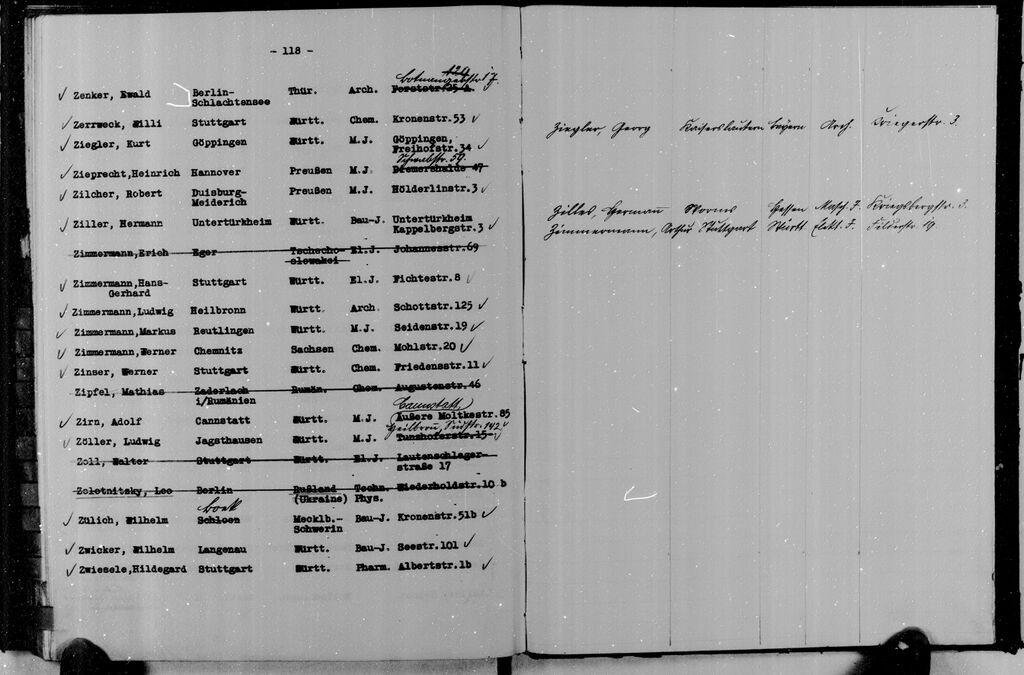 - 118 -
120
Botnangerstr. 17.
Zenker, Ewald Berlin- Thür. Arch. Forststr.25 A
Schlachtensee
Zerrweck, Willi Stuttgart Württ. Chem. Kronenstr.53
Ziegler, Kurt Göppingen Württ. M.J. Göppingen,
Freihofstr.34
Schwabstr. 59.
Zieprecht,Heinrich Hannover Preußen M.J. Bremershalde 47
Zilcher, Robert Duisburg- Preußen M.J. Hölderlinstr.3
Meiderich
Ziller, Hermann Untertürkheim Württ. Bau-J. Untertürkheim
Kappelbergstr.3
Zimmermann,Erich Eger Tschecho- El.J. Johannesstr.69
slowakei
Zimmermann,Hans- Stuttgart Württ. El.J. Fichtestr.8
Gerhard
Zimmermann,Ludwig Heilbronn Württ. Arch. Schottstr.125
Zimmermann,Markus Reutlingen Württ. M.J. Seidenstr.19
Zimmermann,Werner Chemnitz Sachsen Chem. Mohlstr.20
Zinser, Werner Stuttgart Württ. Chem. Friedensstr.11
Zipfel, Mathias Zaderlach Rumän. Chem. Augustenstr.46
i/Rumänien
Cannstatt,
Zirn, Adolf Cannstatt Württ. M.J. Äußere Moltkestr.85
Heilbronn, Südstr. 142
Zöller, Ludwig Jagsthausen Württ. M.J. Tunzhoferstr.15
Zoll, Walter Stuttgart Württ. El.J. Lautenschlager-
straße 17
Zolotnitzky, Leo Berlin Rußland Techn. Wiederholdstr.10 b
(Ukraine) Phys.
boek
Zülich, Wilhelm Schloen Mecklb.- Bau-J. Kronenstr.51b
Schwerin
Zwicker, Wilhelm Langenau Württ. Bau-J. Seestr.101
Zwiesele,Hildegard Stuttgart Württ. Pharm. Albertstr.1b
Ziegler, Georg Kaiserslautern Bayern Arch. Kriegerstr. 3.
Zilles, Herman Worms Hessen Masch. J. Kriegsbergstr.
Zimmermann, Arthur Stuttgart Württ Elekt. J. Filderstr. 19